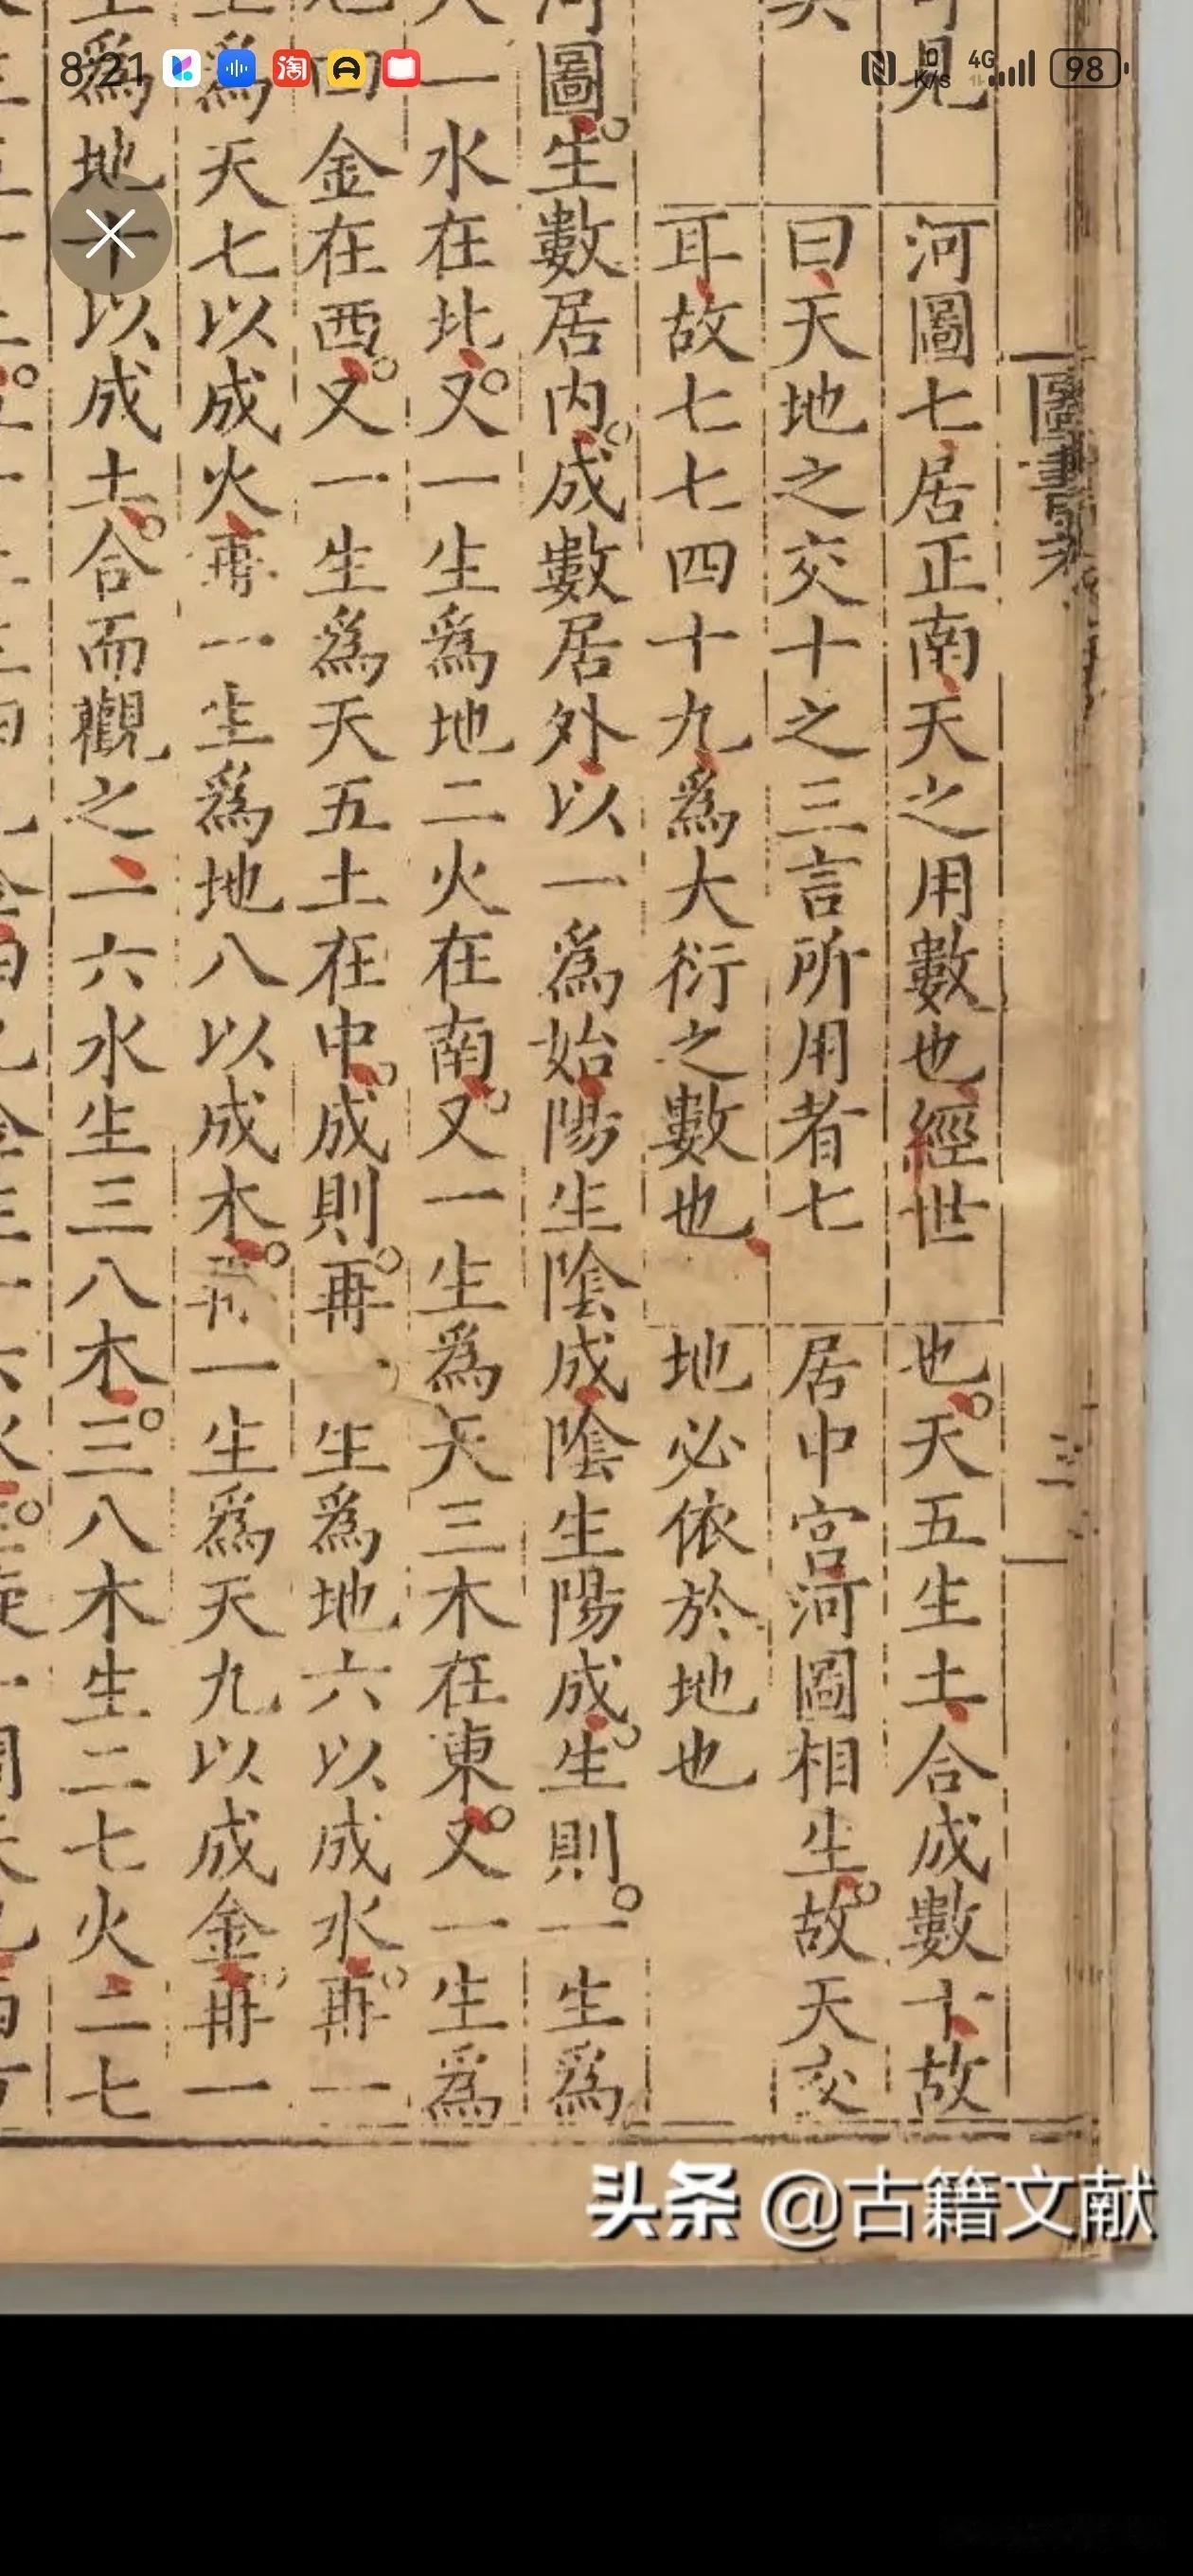 8:21 淘 0 K/s 4G 98
見
河圖七居正南天之用數也經世
曰天地之交十之三言所用者七
耳故七七四十九爲大衍之數也
也天五生土合成數十故
居中宮河圖相生故天交
地必依於地也
河圖生數居内成數居外以一爲始陽生陰成陰生陽成生則一生爲
天一水在北又一生爲地二火在南又一生爲天三木在東又一生爲
四金在西又一生爲天五土在中成則再一生爲地六以成水再一
生爲天七以成火再一生爲地八以成木再一生爲天九以成金再一
生爲地十以成土合而觀之一六水生三八木三八木生二七火二七
头条 @古籍文献